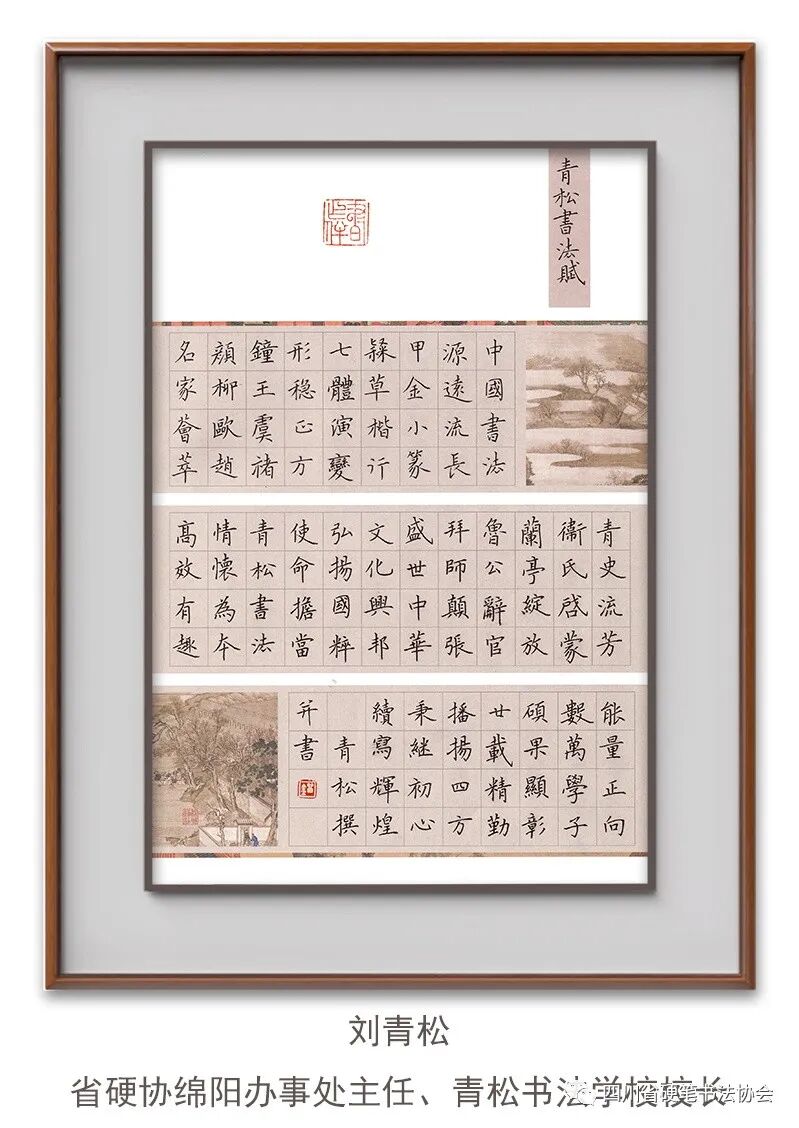 青松書法賦
中國書法
源遠流長
甲金小篆
隸草楷行
七體演變
形穩正方
鐘王虞褚
顏柳歐趙
名家薈萃
青史流芳
衞氏啓蒙
蘭亭綻放
魯公辭官
拜師顛張
盛世中華
文化興邦
弘揚國粹
使命擔當
青松書法
情懷為本
高效有趣
能量正向
數萬學子
碩果顯彰
廿載精勤
播揚四方
秉继初心
續寫輝煌
青松撰
并書
刘青松
省硬协绵阳办事处主任、青松书法学校校长
四川省硬笔书法协会